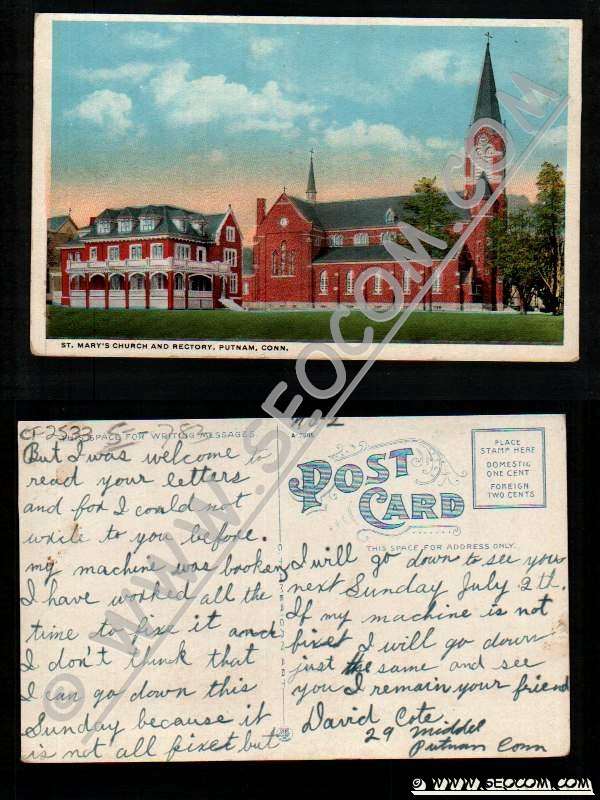 ST. MARY'S CHURCH AND RECTORY, PUTNAM, CONN.
© WWW.SEOCOM.COM
CF2533 753
THIS SPACE FOR WRITING MESSAGES
But I was welcome to
read your letters
and fox I could not
write to you before.
my machine was broken
I have worked all the
time to fixe it and
I don't think that
I can go down this
Sunday because it
is not all fixet but
No 2
POST
CARD
THIS SPACE FOR ADDRESS ONLY.
PLACE
STAMP HERE
DOMESTIC
ONE CENT
FOREIGN
TWO CENTS
I will go down to see you
next Sunday July 2th.
If my machine is not
fixet I will go down
just the same and see
you I remain your friend
David Cote
29 Middel
Putnam Conn
© WWW.SEOCOM.COM